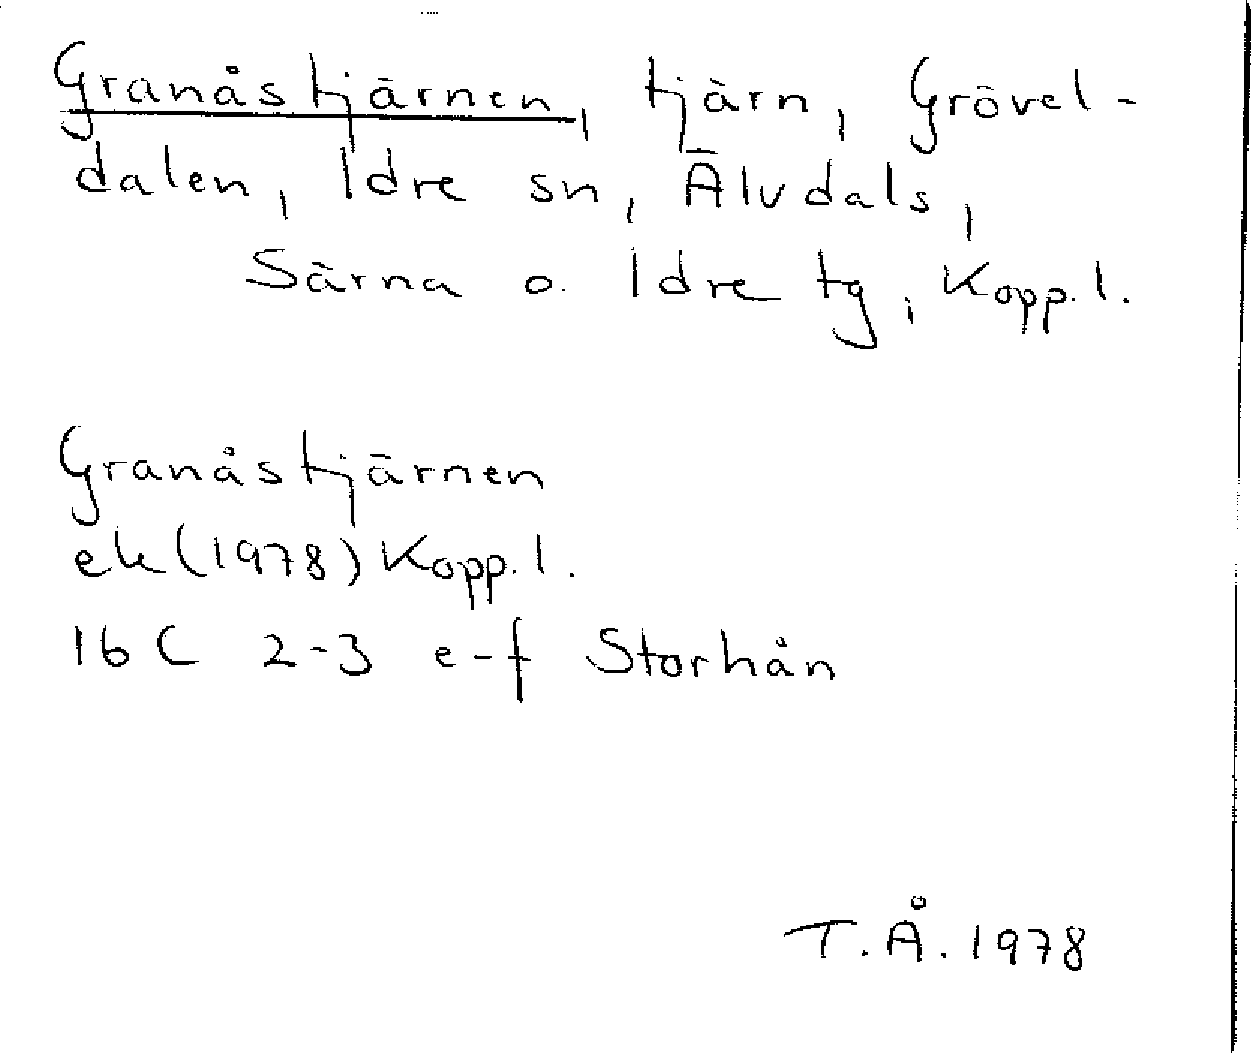 Granåstjärnen, tjärn, Grövel-
dalen, Idre sn, Älvdals,
Särna o. Idre tg, Kopp. l.
Granåstjärnen
ek (1978) Kopp. l.
16 C 2-3 e-f Storhån
T.Å. 1978